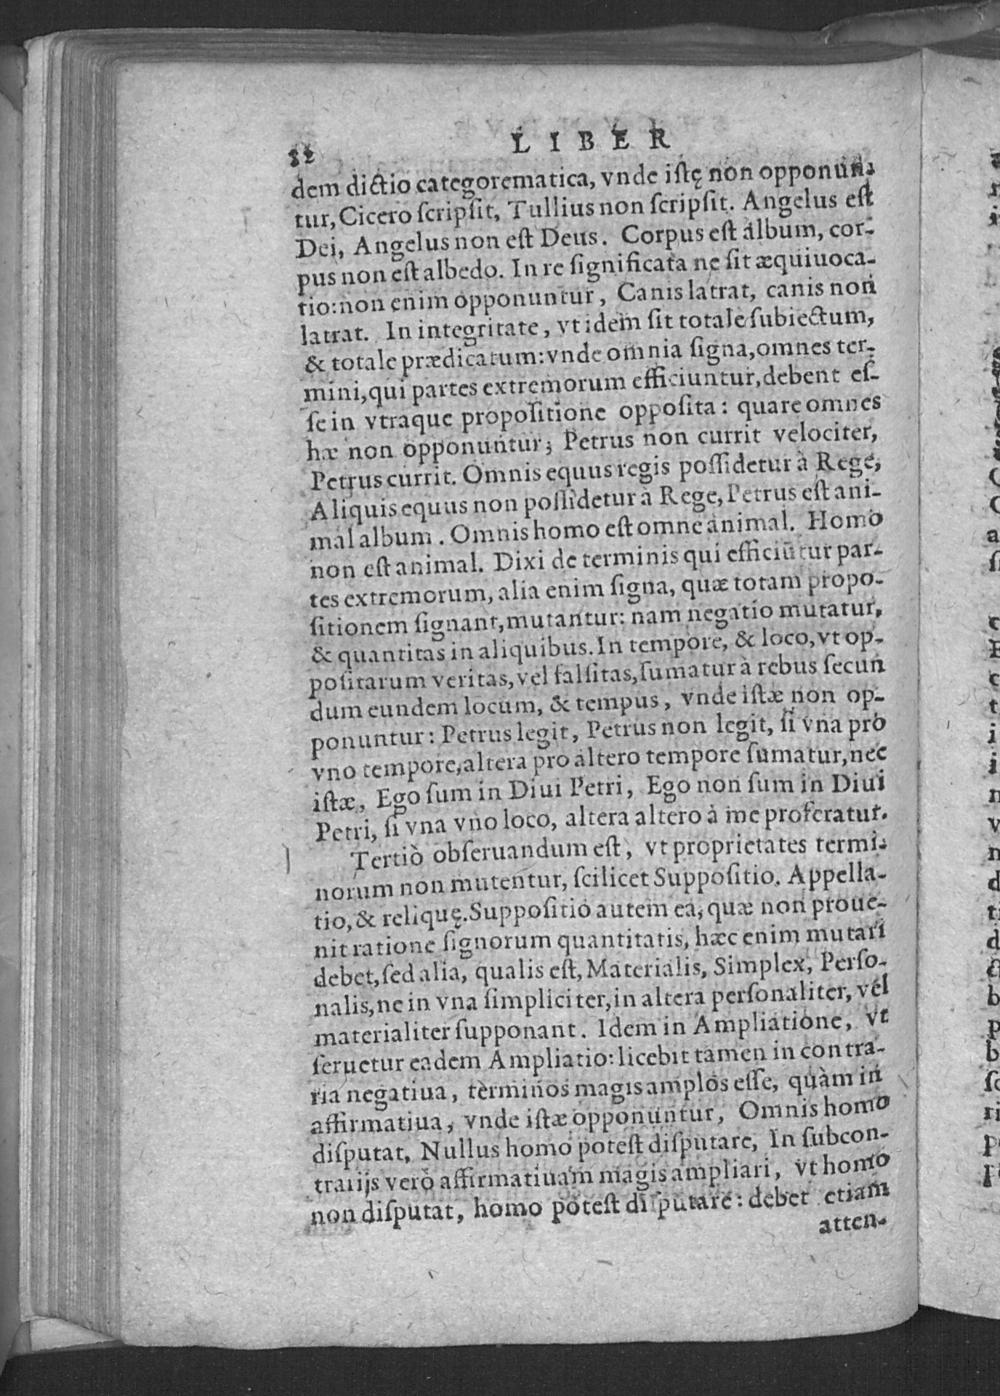 52
LIBER
dem dictio categorematica, vnde istę non opponun-
tur, Cicero scripsit, Tullius non scripsit. Angelus est
Dei, Angelus non est Deus. Corpus est album, cor-
pus non est albedo. In re significata ne sit æquiuoca-
tio: non enim opponuntur, Canis latrat, canis non
latrat. In integritate, vt idem sit totale subiectum,
& totale prædicatum: vnde omnia signa, omnes ter-
mini, qui partes extremorum efficiuntur, debent es-
se in vtraque propositione opposita: quare omnes
hæ non opponuntur; Petrus non currit velociter,
Petrus currit. Omnis equus regis possidetur à Rege,
Aliquis equus non possidetur à Rege, Petrus est ani-
mal album. Omnis homo est omne animal. Homo
non est animal. Dixi de terminis qui efficiūtur par-
tes extremorum, alia enim signa, quæ totam propo-
sitionem signant, mutantur: nam negatio mutatur,
& quantitas in aliquibus. In tempore, & loco, vt op-
positarum veritas, vel falsitas, sumatur à rebus secun
dum eundem locum, & tempus, vnde istæ non op-
ponuntur: Petrus legit, Petrus non legit, si vna pro
vno tempore, altera pro altero tempore sumatur, nec
istæ, Ego sum in Diui Petri, Ego non sum in Diui
Petri, si vna vno loco, altera altero à me proferatur.
Tertiò obseruandum est, vt proprietates termi-
norum non mutentur, scilicet Suppositio. Appella-
tio, & reliquę. Suppositio autem ea, quæ non proue-
nit ratione signorum quantitatis, hæc enim mutari
debet, sed alia, qualis est, Materialis, Simplex, Perso-
nalis, ne in vna simpliciter, in altera personaliter, vel
materialiter supponant. Idem in Ampliatione, vt
seruetur eadem Ampliatio: licebit tamen in contra-
ria negatiua, terminos magis amplos esse, quàm in
affirmatiua, vnde istæ opponuntur, Omnis homo
disputat, Nullus homo potest disputare, In subcon-
trarijs verò affirmatiuam magis ampliari, vt homo
non disputat, homo potest disputare: debet etiam
atten-